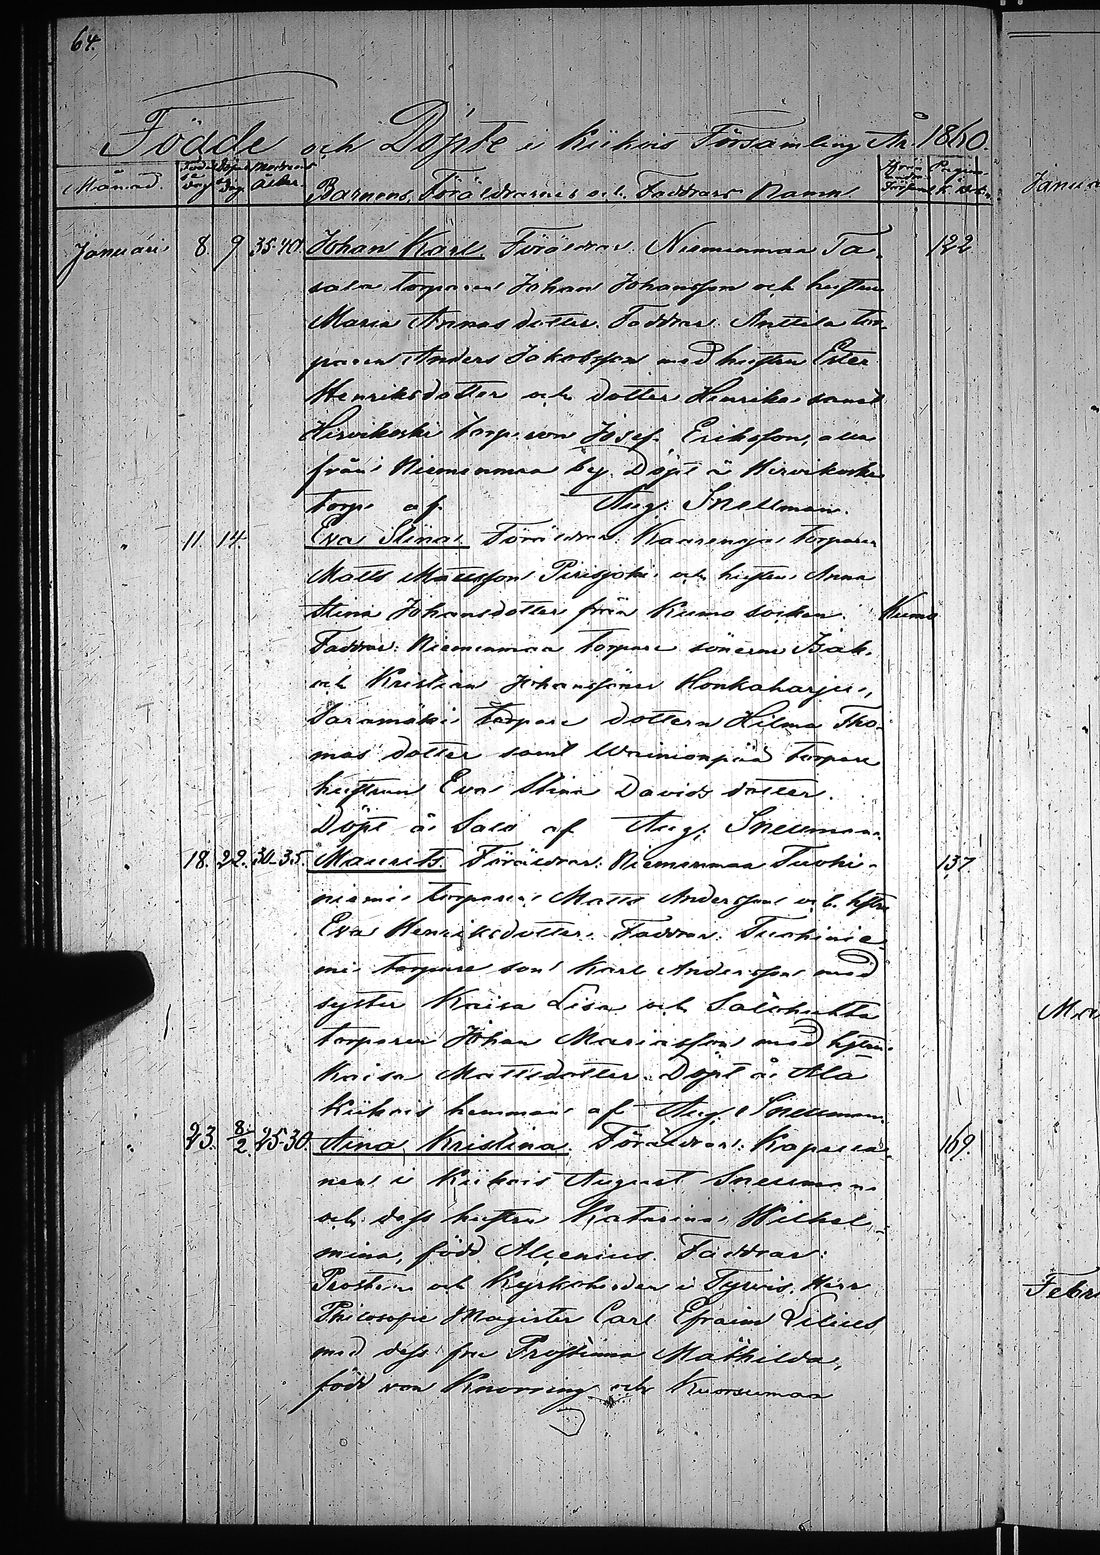 64.
Födde och Döpte i Kiikois Församling År 1860.
Månad. Födelse dag Döpelse dag Modrens Ålder. Barnens, Föräldrarnes och Faddrars Namn.
Januari 8. 9. 35-40. Johan Karl. Föräldrar. Niemenmaa Ta- 122
torparen Johan Johansson och hustrun
Maria Annasdotter. Faddrar. Anttila tor-
paren Anders Jakobsson med hustrun Ester
Henriksdotter och dotter Henrika samt
Hirvikoski torp. son Josef Eriksson, alla
från Niemenmaa by. Döpt å Hirvikoski
torp af Aug. Snellman.
11. 14. Eva Stina. Föräldrar. torparen
Matts Mattsson och hustrun Anna
Stina Johansdotter från Kumo socken. Kumo
Faddrar: Niemenmaa torpare sönerne Isak
och Kristian Johanssöner Honkaharju,
Saramäki torpare dottern Hilma Tho-
mas dotter samt Wainionpää torpare
hustrun Eva Stina Davids dotter.
Döpt å Salo af Aug. Snellman.
18. 22. 30-35. Maurits. Föräldrar: Niemenmaa Tuohi- 137
niemi torparen Matts Andersson och hstru
Eva Henriksdotter. Faddrar. Tuohinie-
mi torpare son Karl Andersson med
syster Kaisa Lisa och
torparen Johan Mariasson med hstrun
Kaisa Mattsdotter. Döpt å Ala
Kiikois hemman af Aug. Snellman.
23. 8/2 25-30. Aina Kristina. Föräldrar: Kapella- 169.
nen i Kiikois August Snellman
och dess hustru Katarina Wilhel-
mina, född Alcenius. Faddrar:
Prosten och Kyrkoherden i Tyrvis, Herr
Philosofie Magister Carl Efraim Lilius
med dess fru Prostinna Mathilda,
född von Knorring och Kuorsumaa
Janua
Febru